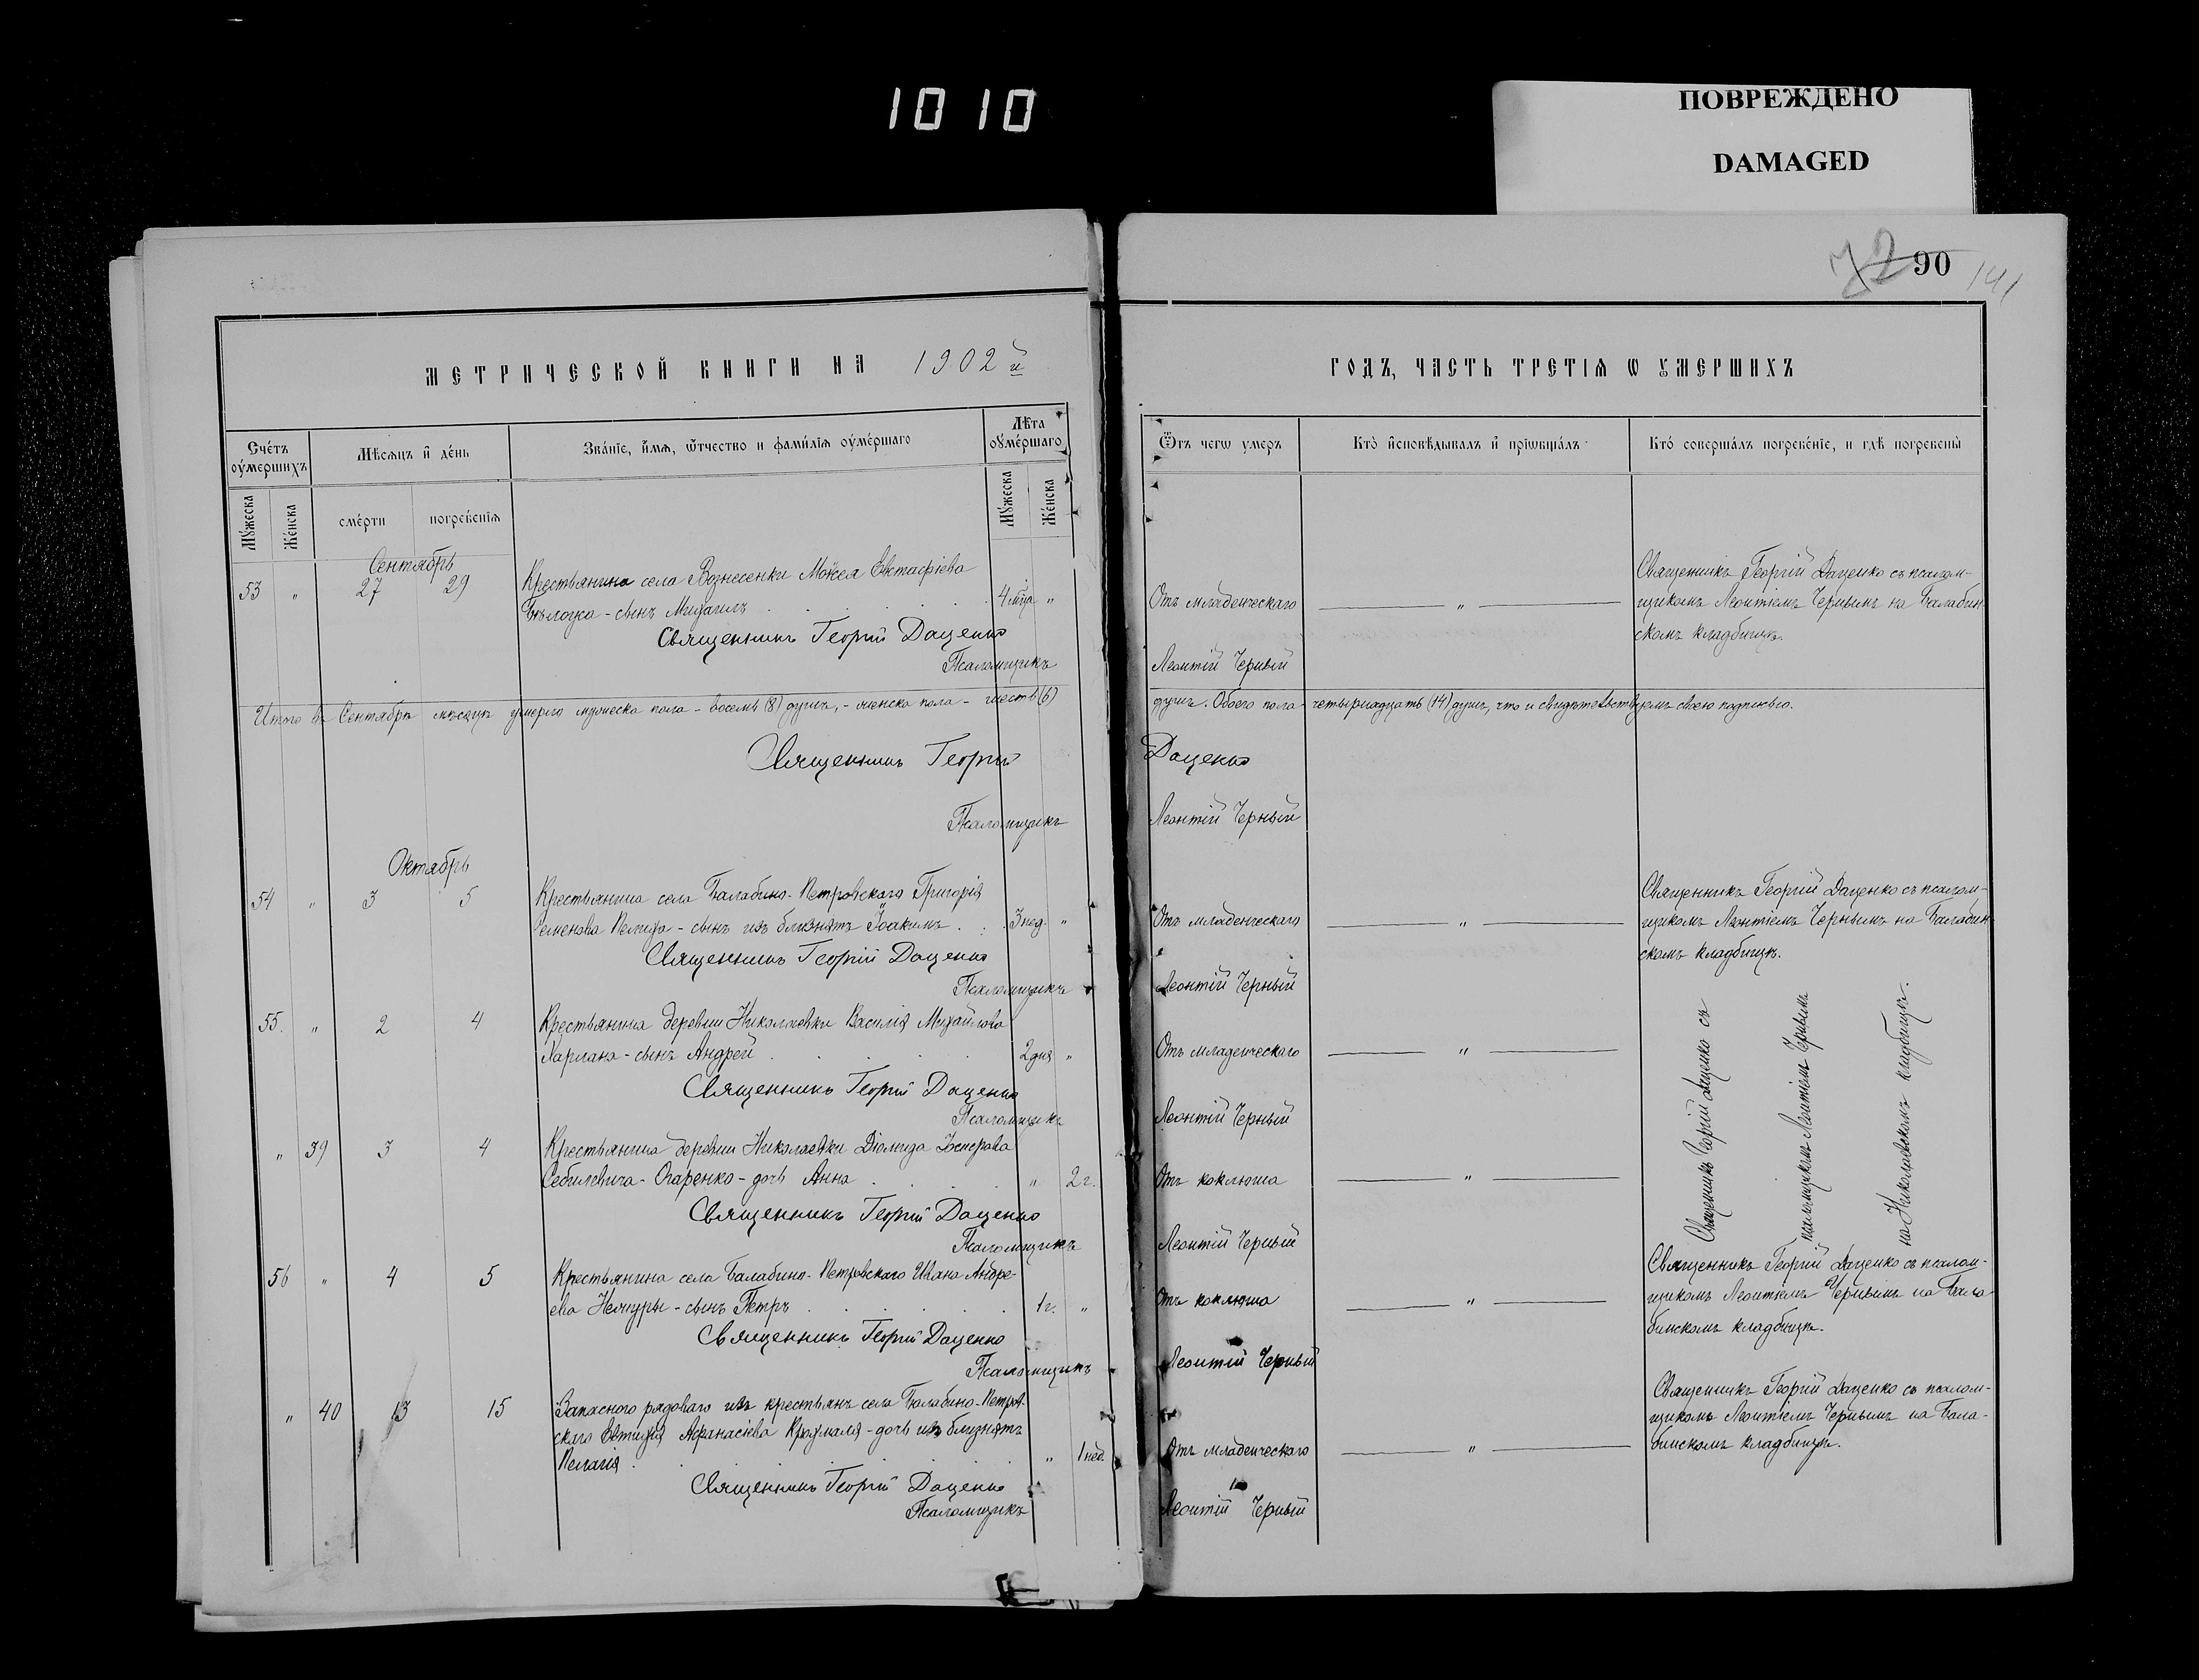 1010
ПОВРЕЖДЕНО
DAMAGED
72 90 141
МЕТРИЧЕСКОЙ КНИГИ НА 1902 й
ГОДЪ, ЧАСТЬ ТРЕТІѦ Ѡ ОУМЕРШИХЪ
Счетъ оумершихъ
Мѣсяцъ и день
Званіе, имя, ѿтчество и фамилія оумершаго
Лѣта оумершаго
Мужеска
Женска
смерти
погребенія
Мужеска
Женска
Ѿтъ чегѡ умеръ
Кто исповѣдывалъ и пріѡбщалъ
Кто совершалъ погребеніе, и гдѣ погребены
Сентябрь
53 " 27 29 Крестьянина села Вознесенки Моѵсея Евстафіева
сынъ Михаилъ 4 м̃ца "
Отъ младенческаго "
Священникъ Георгій Даценко съ псалом-
щикомъ Леонтіемъ Чернымъ на Балабин
скомъ кладбищѣ.
Священникъ Георгій Даценко
Псаломщикъ Леонтій Черный
Итого въ Сентябрѣ мѣсяцѣ умерло мужеска пола - восемь (8) душъ, - женска пола - шесть (6)
душъ. Обоего пола четырнадцать (14) душъ, что и свидѣтельствуемъ своею подписью.
Священникъ Георгій Даценко
Псаломщикъ Леонтій Черный
Октябрь
54 " 3 5 Крестьянина села Балабино-Петровскаго Григорія
Семенова - сынъ изъ близнятъ Іоакимъ 3 нед. "
Отъ младенческаго "
Священникъ Георгій Даценко съ псалом-
щикомъ Леонтіемъ Чернымъ на Балабин
скомъ кладбищѣ.
Священникъ Георгій Даценко
Псаломщикъ Леонтій Черный
55. " 2 4 Крестьянина деревни Николаевки Василія Михайлова
Харлана - сынъ Андрей 2 дня "
Отъ младенческаго "
Священникъ Георгій Даценко съ
псаломщикомъ Леонтіемъ Чернымъ
на Николаевскомъ кладбищѣ.
Священникъ Георгій Даценко
Псаломщикъ Леонтій Черный
" 39 3 4 Крестьянина деревни Николаевки Діомида Іосифова
Огаренко - дочь Анна " 2 г.
Отъ коклюша "
Священникъ Георгій Даценко
Псаломщикъ Леонтій Черный
56 " 4 5 Крестьянина села Балабино-Петровскаго Ивана Андре-
ева - сынъ Петръ 1 г. "
Отъ коклюша "
Священникъ Георгій Даценко съ псалом-
щикомъ Леонтіемъ Чернымъ на Бала
бинскомъ кладбищѣ.
Священникъ Георгій Даценко
Псаломщикъ Леонтій Черный
" 40 13 15 Запаснаго рядоваго изъ крестьянъ села Балабино-Петров-
скаго Евтихія Афанасіева Крохмаля - дочь изъ близнятъ
Пелагія " 1 нед.
Отъ младенческаго "
Священникъ Георгій Даценко съ псалом-
щикомъ Леонтіемъ Чернымъ на Бала-
бинскомъ кладбищѣ.
Священникъ Георгій Даценко
Псаломщикъ Леонтій Черный